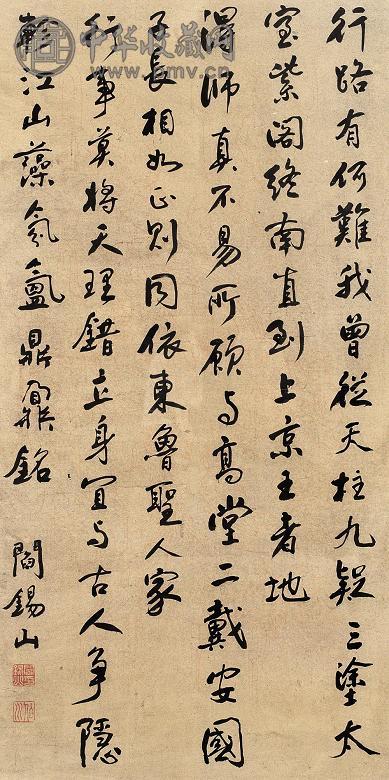 行路有何難我曾從天柱九疑三塗太
室紫閣終南直到上京王者地
得師真不易所願与高堂二戴安國
子長相如正則同依東魯聖人家
行事莫將天理錯立身宜与古人爭隱
轔江山藻氛氳鼎鼐銘
閻錫山
中华收藏网